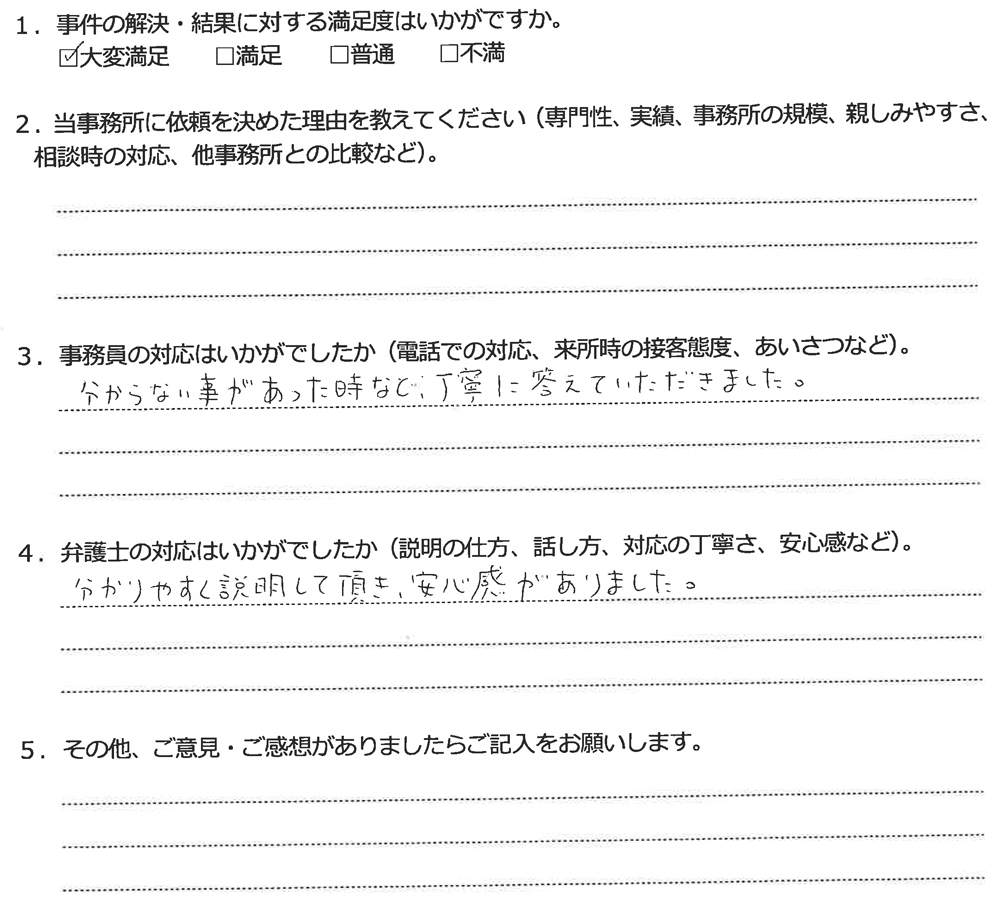 1．事件の解決・結果に対する満足度はいかがですか。
☑大変満足 □満足 □普通 □不満
2．当事務所に依頼を決めた理由を教えてください（専門性、実績、事務所の規模、親しみやすさ、
相談時の対応、他事務所との比較など）。
3．事務員の対応はいかがでしたか（電話での対応、来所時の接客態度、あいさつなど）。
分からない事があった時など、丁寧に答えていただきました。
4．弁護士の対応はいかがでしたか（説明の仕方、話し方、対応の丁寧さ、安心感など）。
分かりやすく説明して頂き、安心感がありました。
5．その他、ご意見・ご感想がありましたらご記入をお願いします。